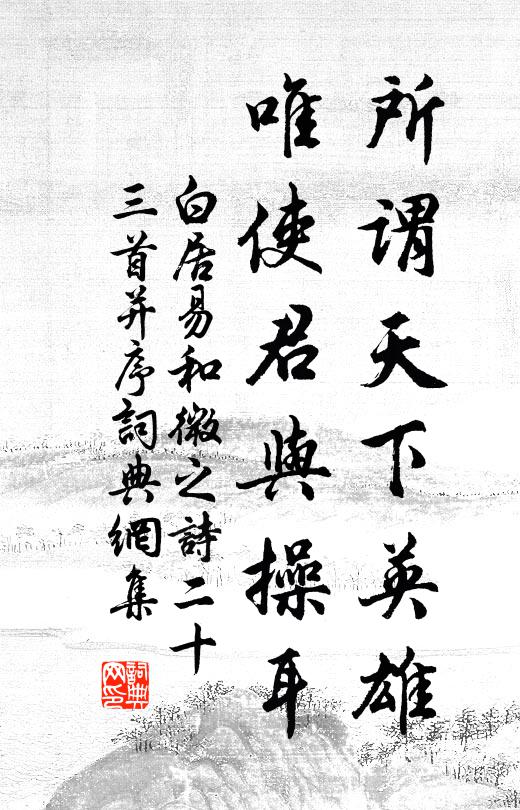 所謂天下英雄
唯使君與操耳
白居易和微之詩二十
三首并序詞典網集
詞典
网印